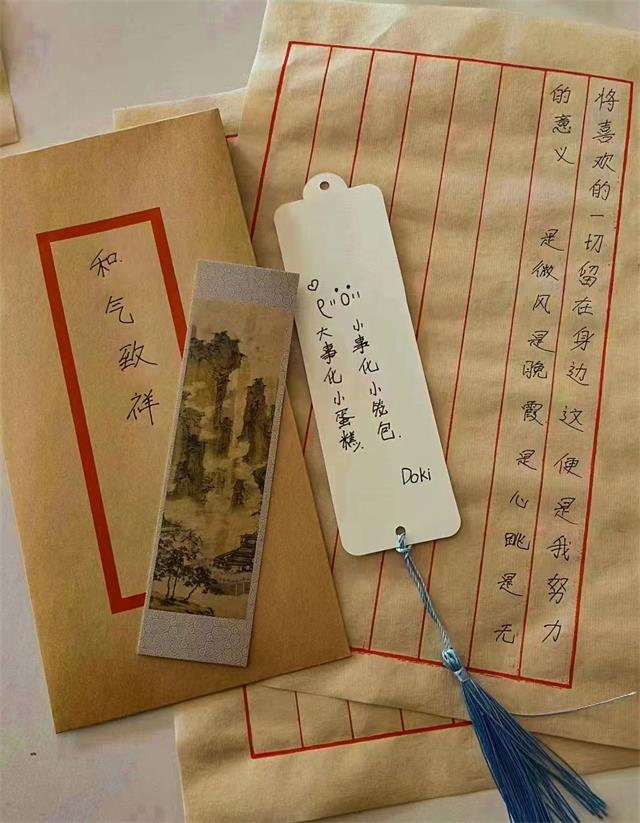 和气致祥
小事化小笼包.
大事化小蛋糕.
Doki
将喜欢的一切留在身边 这便是我努力
的意义 是微风是晚霞 是心跳是无